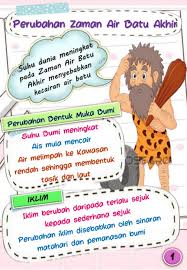 Perubahan Zaman Air Batu Akhir
Suhu dunia meningkat
pada Zaman Air Batu
Akhir menyebabkan
kecairan air batu
Perubahan Bentuk Muka Bumi
Suhu Bumi meningkat
Ais mula mencair
Air melimpah ke Kawasan
rendah sehingga membentuk
tasik dan laut
IKLIM
Iklim berubah daripada terlalu sejuk
kepada sederhana sejuk
Perubahan iklim disebabkan oleh sinaran
matahari dan pemanasan bumi
1